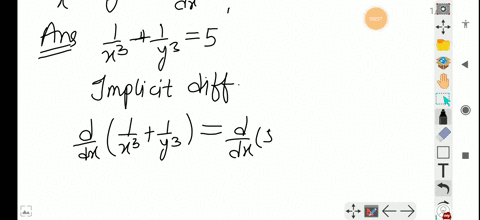 x y dx ,
Ans 1/x³ + 1/y³ = 5
Implicit diff.
d/dx (1/x³ + 1/y³) = d/dx (5